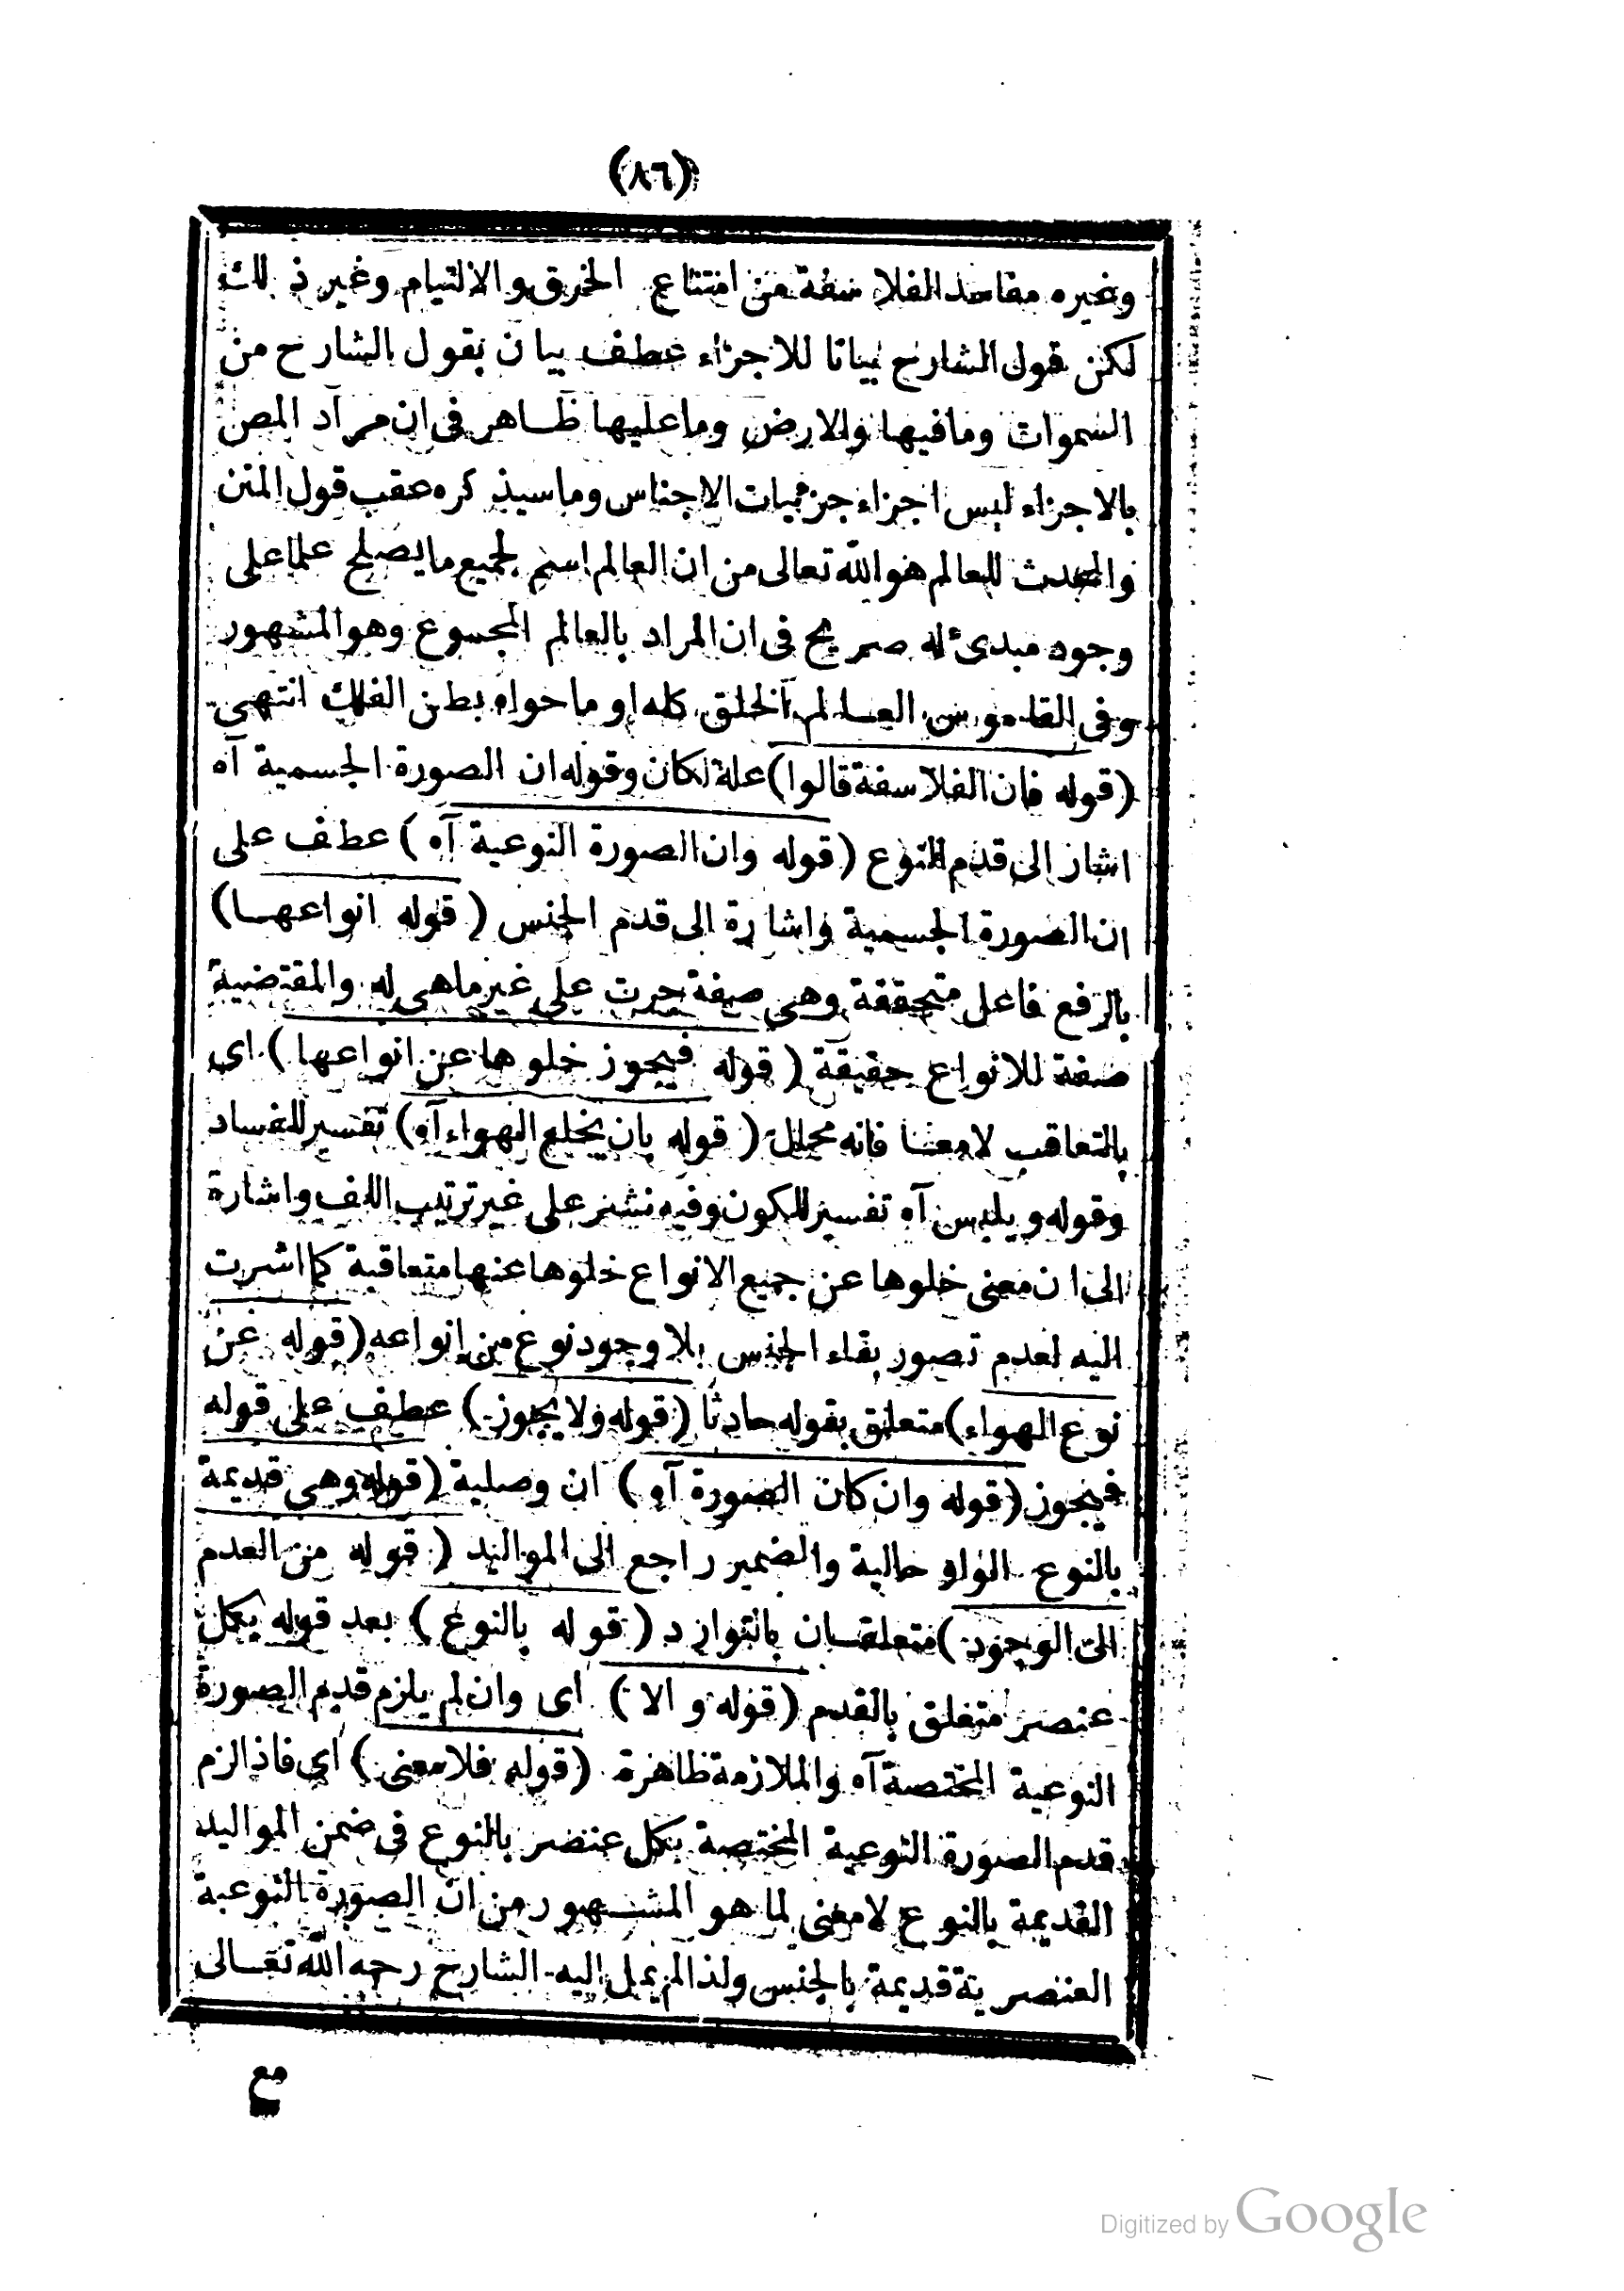 (٨٦)
وغيره مفاسد الفلاسفة من امتناع الخرق والالتيام وغير ذلك
لكن قول الشارح بيانا للاجزاء عطف بيان بقول الشارح من
السموات ومافيها والارض وماعليها ظاهر فى ان مراد المص
بالاجزاء ليس اجزاء جزئيات الاجناس وماسيذكره عقب قول المتن
والمحدث للعالم هو الله تعالى من ان العالم اسم لجميع مايصلح علما على
وجود مبدئ له صريح فى ان المراد بالعالم المجموع وهو المشهور
وفى القاموس العالم الخلق كله او ما حواه بطن الفلك انتهى
(قوله فان الفلاسفة قالوا) علة لكان وقوله ان الصورة الجسمية آه
اشار الى قدم النوع (قوله وان الصورة النوعية آه) عطف على
ان الصورة الجسمية واشارة الى قدم الجنس (قوله انواعها)
بالرفع فاعل متحققة وهى صفة جرت على غير ماهى له والمقتضية
صفة للانواع حقيقة (قوله فيجوز خلوها عن انواعها) اى
بالتعاقب لامعا فانه محال (قوله بان يخلع الهواء آه) تفسير للفساد
وقوله ويلبس آه تفسير للكون وفيه نشر على غير ترتيب اللف واشارة
الى ان معنى خلوها عن جميع الانواع خلوها عنها متعاقبة كما اشرت
اليه لعدم تصور بقاء الجنس بلا وجود نوع من انواعه (قوله عن
نوع الهواء) متعلق بقوله حادثا (قوله ولا يجوز) عطف على قوله
فيجوز (قوله وان كان الصورة آه) ان وصلية (قوله وهى قديمة
بالنوع الواو حالية والضمير راجع الى المواليد (قوله من العدم
الى الوجود) متعلقان بالتوارد (قوله بالنوع) بعد قوله بكل
عنصر متعلق بالقدم (قوله والا) اى وان لم يلزم قدم الصورة
النوعية المختصة آه والملازمة ظاهرة (قوله فلا معنى) اى فاذا لزم
قدم الصورة النوعية المختصة بكل عنصر بالنوع فى ضمن المواليد
القديمة بالنوع لامعنى لما هو المشهور من ان الصورة النوعية
العنصرية قديمة بالجنس ولذا لم يمل اليه الشارح رحمه الله تعالى
مع
Digitized by Google